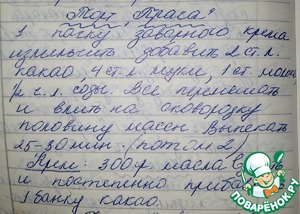 Торт Прага
1 пачку заварного крема
измельчить добавить 2 ст. л.
какао, 4 ст. л. муки, 1 ст. молок
½ ч. л. соды. Все перемешать
и влить на сковородку
половину массы. Выпекать
25-30 мин. (потом 2)
Крем: 300 г масла
и постепенно
1 банку какао.
ПОВАРЁНОК.RU